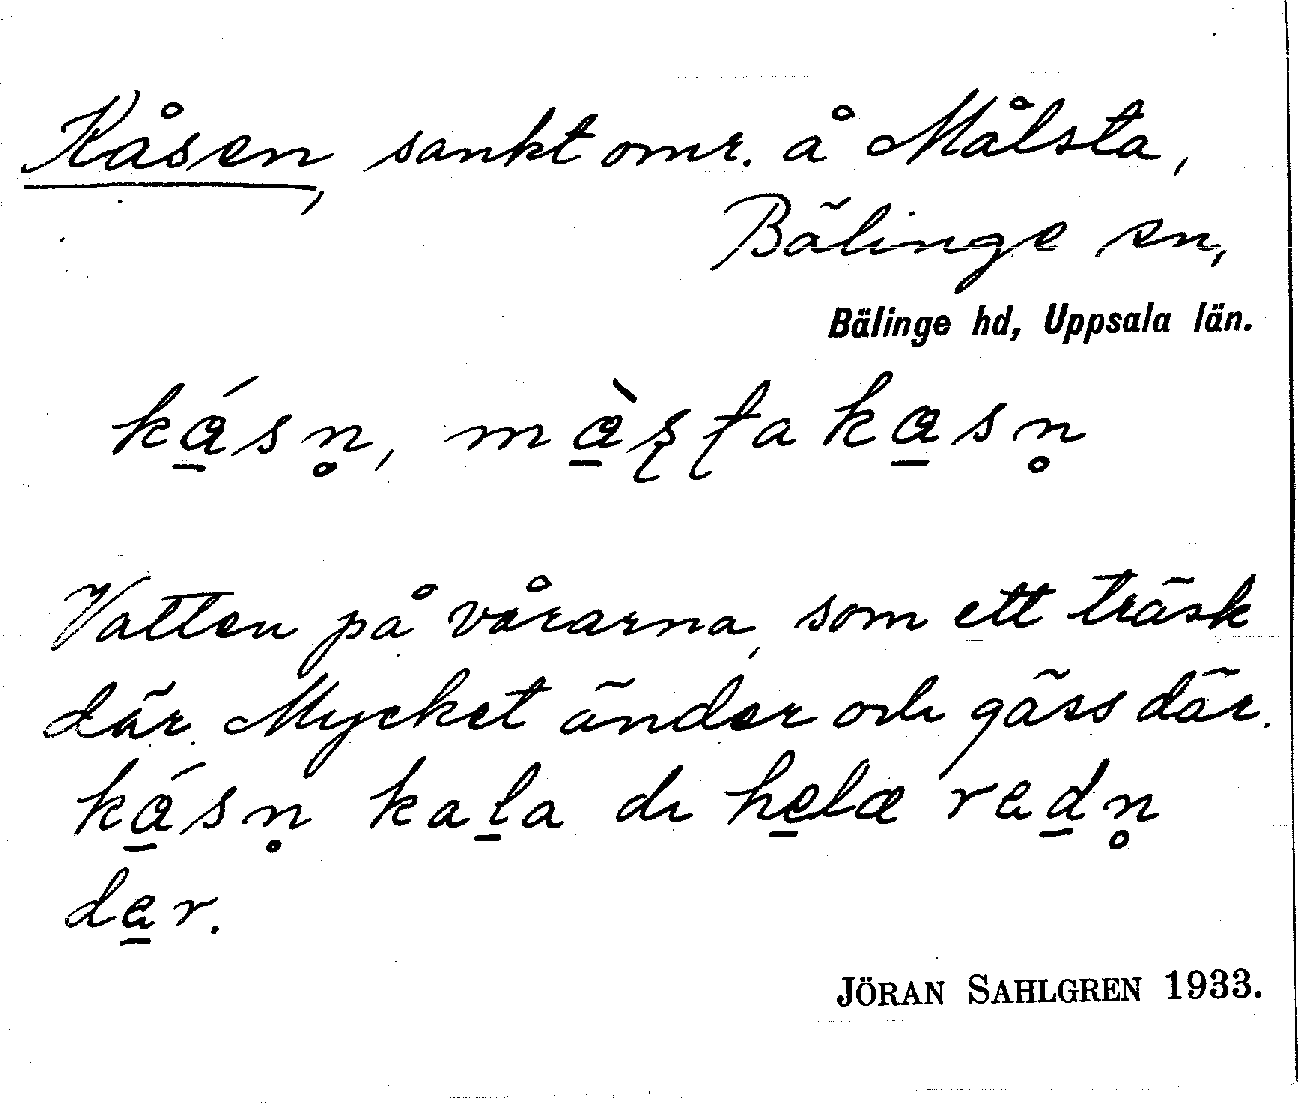 Kåsen, sankt omr. å Målsta,
Bälinge sn,
Bälinge hd, Uppsala län.
ká̱sn̥, mà̱ʂʈaka̱sn̥
Vatten på vårarna, som ett träsk
där. Mycket änder och gäss där.
ká̱sn̥ kaḻa di he̱læ rɐḏn̥
dɐ̱r.
JÖRAN SAHLGREN 1933.